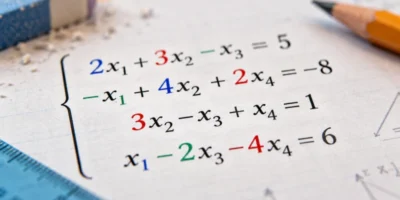 2x₁ + 3x₂ − x₃ = 5
−x₁ + 4x₂ + 2x₄ = −8
3x₂ − x₃ + x₄ = 1
x₁ − 2x₃ − 4x₄ = 6